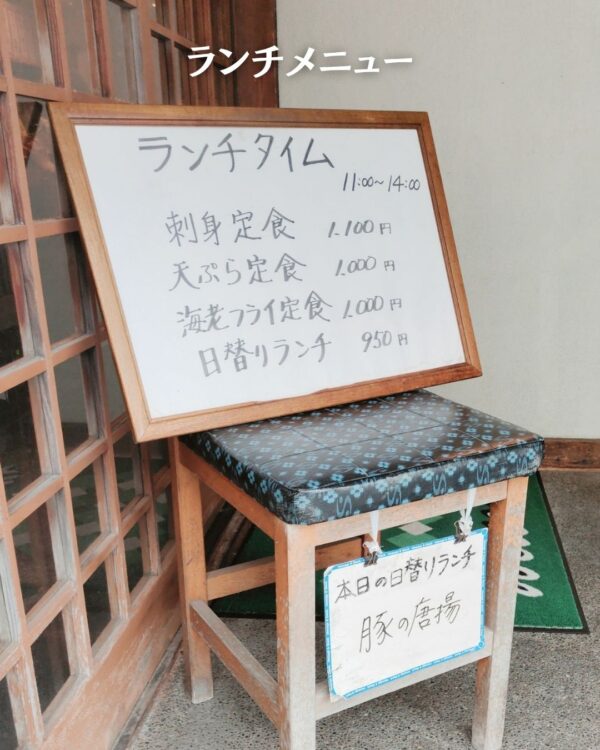 ランチメニュー
ランチタイム
11:00~14:00
刺身定食 1.100円
天ぷら定食 1.000円
海老フライ定食 1.000円
日替りランチ 950円
本日の日替りランチ
豚の唐揚